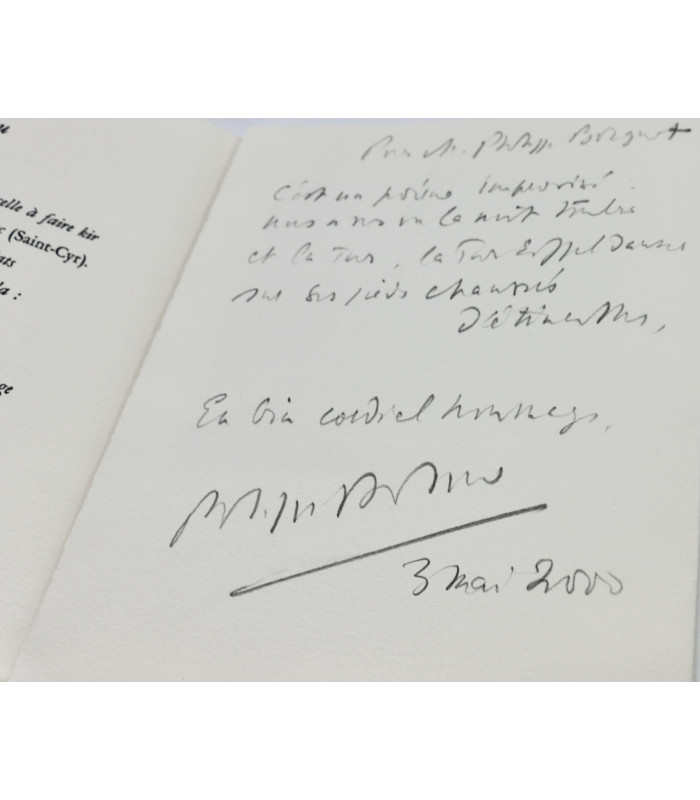 elle à faire kir
(Saint-Cyr).
la :
ge
Pour M. Philippe
C'est un poème improvisé
nous avons vu la nuit
et la Tour, la Tour Eiffel danse
sur ses pieds chaussés
d'étincelles,
En bien cordial hommage,
3 mai 2000